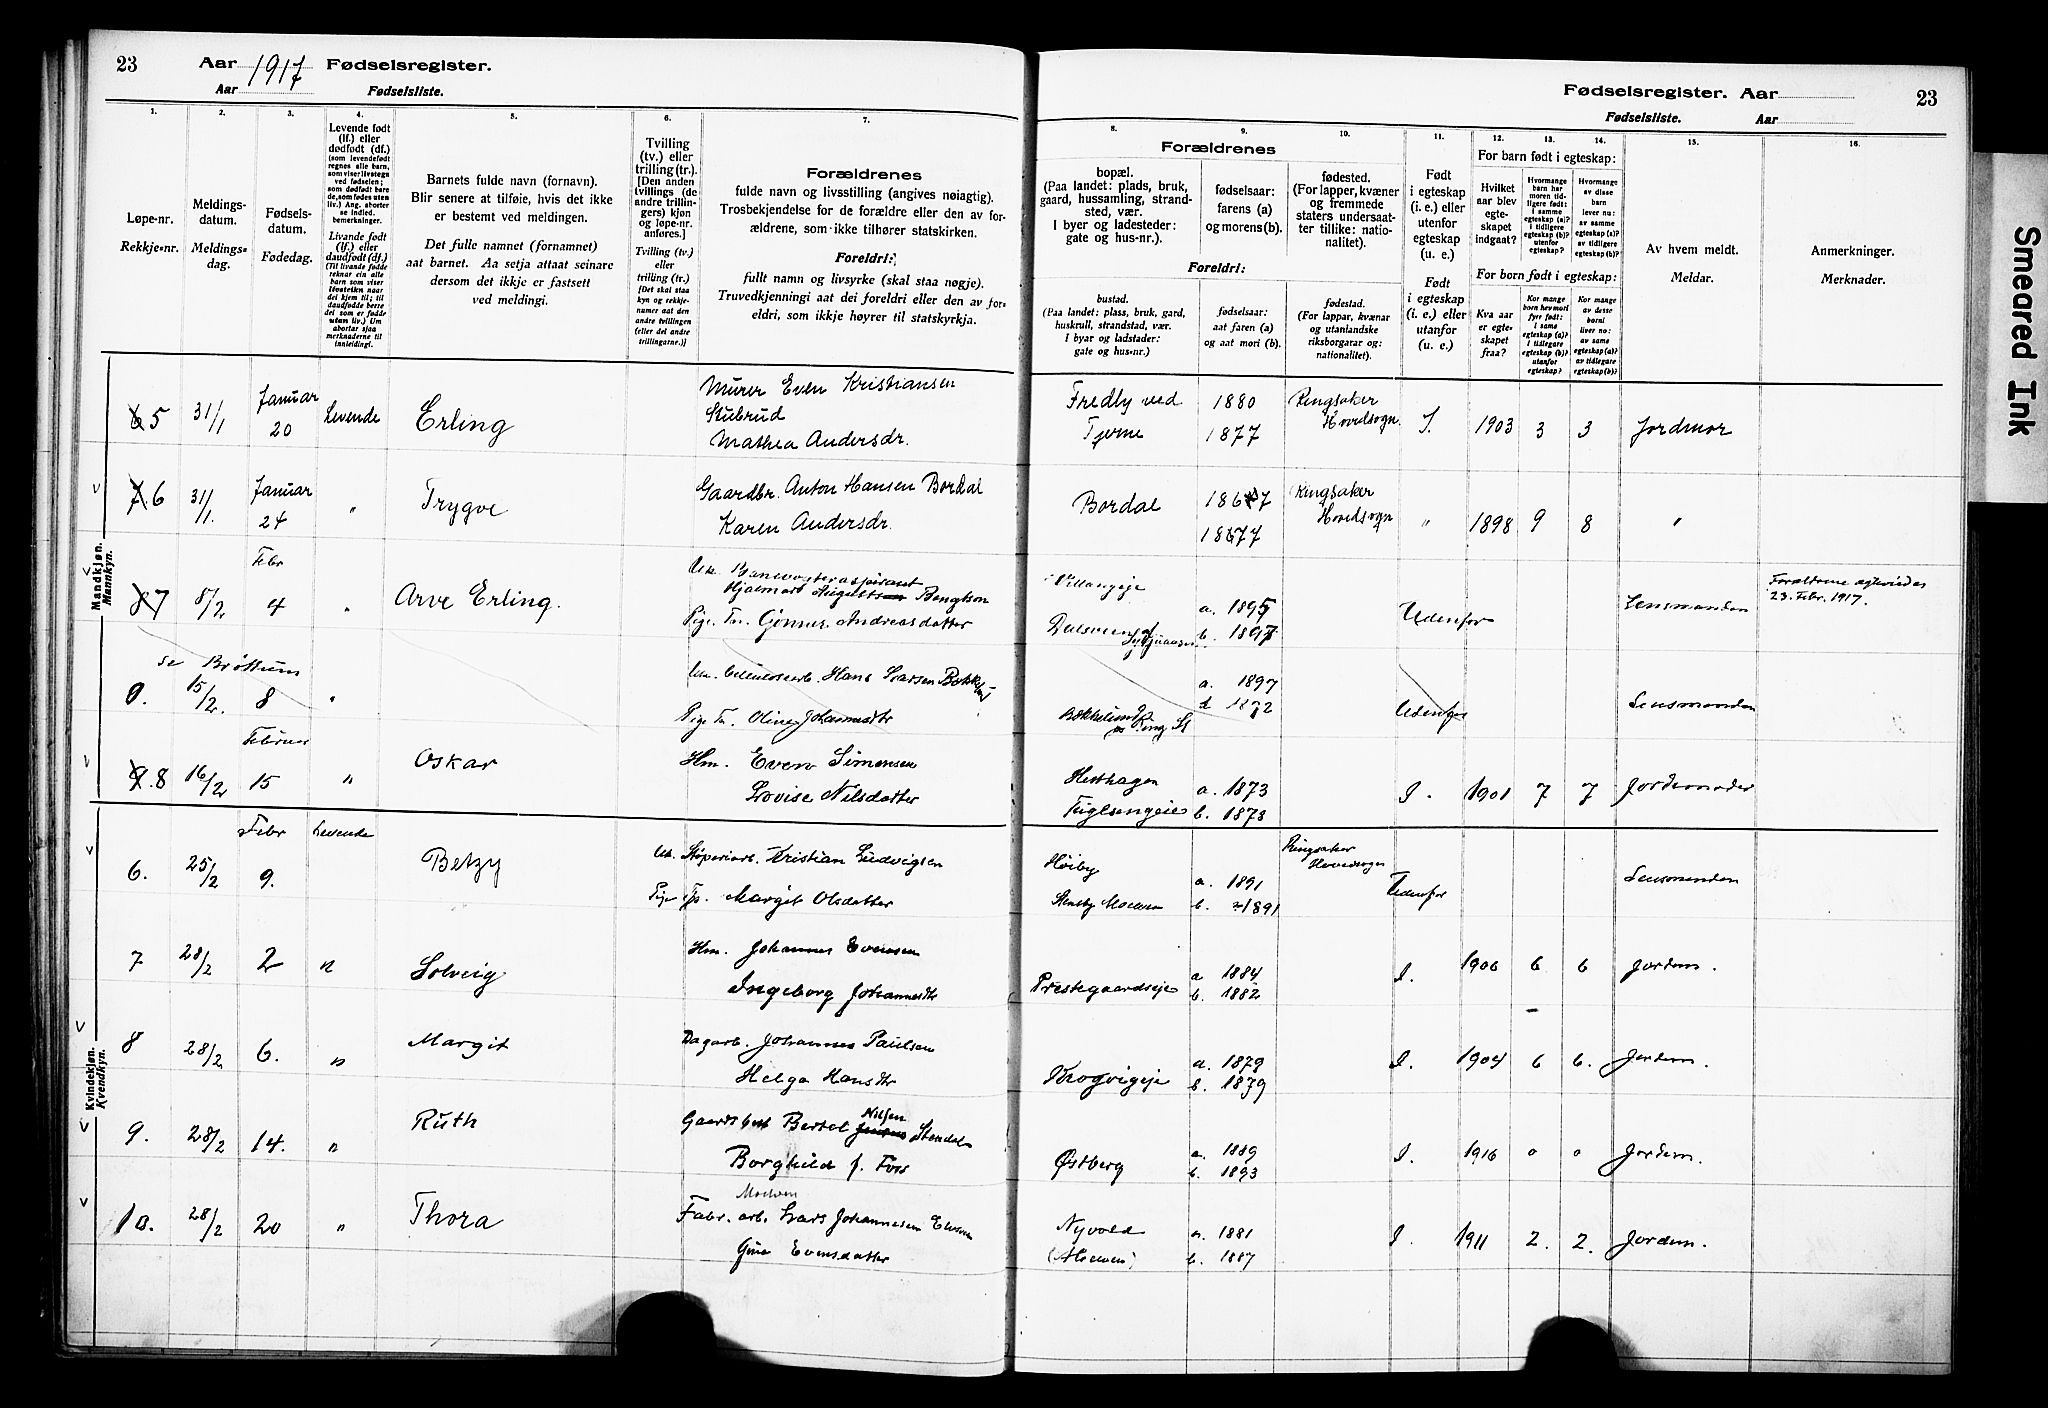 23 Aar 1917 Fødselsregister.
Aar Fødselsliste.
Fødselsregister. Aar 23
Fødselsliste. Aar
Smeared Ink
1.
Løpe-nr.
Rekkje-nr.
2.
Meldings-
datum.
Meldings-
dag.
3.
Fødsels-
datum.
Fødedag.
4.
Levende født
(lf.) eller
dødfødt (df.)
(som levendefødt
regnes alle barn,
som viser livstegn
ved fødselen;
som dødfødt bare
de, som fødes uten
liv.) Ang. aborter
se indled.
bemerkninger.
Livande født
(lf.) eller
daudfødt (df.)
(Til livande fødde
reknar ein alle
barn som viser
livsteikn naar
dei kjem til; til
daudfødde berre
dei som er fødde
utan liv.) Um
abortar sjaa
merknaderne til
innleiding!.
5.
Barnets fulde navn (fornavn).
Blir senere at tilføie, hvis det ikke
er bestemt ved meldingen.
Det fulle namnet (fornamnet)
aat barnet. Aa setja attaat seinare
dersom det ikkje er fastsett
ved meldingi.
6.
Tvilling
(tv.) eller
trilling (tr.).
[Den anden
tvillings (de
andre trillin-
gers) kjøn
og løpe-nr.
anføres.]
Tvilling (tv.)
eller
trilling (tr.)
[Det skal staa
kyn og rekkje-
numer aat den
andre tvillingen
(eller dei andre
trillingarne.)]
7.
Forældrenes
fulde navn og livsstilling (angives nøiagtig).
Trosbekjendelse for de forældre eller den av for-
ældrene, som ikke tilhører statskirken.
Foreldri:
fullt namn og livsyrke (skal staa nøgje).
Truvedkjenningi aat dei foreldri eller den av for-
eldri, som ikkje høyrer til statskyrkja.
Forældrenes
8.
bopæl.
(Paa landet: plads, bruk,
gaard, hussamling, strand-
sted, vær.
I byer og ladesteder:
gate og hus-nr.).
9.
fødselsaar:
farens (a)
og morens (b).
10.
fødested.
(For lapper, kvæner
og fremmede
staters undersaat-
ter tillike: natio-
nalitet).
Foreldri:
bustad.
(Paa landet: plass, bruk, gard,
huskrull, strandstad, vær.
I byar og ladstader:
gate og hus-nr.)
fødselsaar:
aat faren (a)
og aat mori (b).
fødestad.
(For lappar, kvænar
og utanlandske
riksborgarar og:
nationalitet).
11.
Født
i egteskap
(i. e.) eller
utenfor
egteskap
(u. e.)
Født
i egteskap
(i. e.) eller
utanfor
(u. e.)
For barn født i egteskap:
12.
Hvilket
aar blev
egte-
skapet
indgaat?
13.
Hvormange
barn har
moren tid-
ligere født:
I samme
egteskap (a)?
I tidligere
egteskap (b)?
utenfor
egteskap?
14.
Hvormange
av disse
barn
lever nu:
av samme
egteskap (a)?
av tidligere
egteskap (b)?
For born født i egteskap:
Kva aar
er egte-
skapet
fraa?
Kor mange
born hev mori
fyrr født:
I same
egteskap (a)?
I tidlegare
egteskap (b)?
utanfor
egteskap?
Kor mange
av desse
borni
liver no:
av same
egteskap (a)?
av tidlegare
egteskap (b)?
15.
Av hvem meldt.
Meldar.
16.
Anmerkninger.
Merknader.
Mandkjøn.
Mannkyn.
6 5 31/1 Januar 20 Levende Erling Murer Even Kristiansen Stubrud Mathea Andersdr. Fredly ved Tjerne 1880 1877 Ringsaker Hovedsogn. I. 1903 3 3 Jordmor
7 6 31/1. Januar 24 " Trygve Gaardbr. Anton Hansen Bordal Karen Andersdr. Bordal 1867 1877 Ringsaker Hovedsogn " 1898 9 8 "
8 7 8/2 Febr 4 " Arve Erling. Uk. Banevogteraspirant Hjalmar August Bengtson Pige Tn. Gunnor Andreasdatter a. 1895 b. 1897 Udenfor Lensmanden Forældrene egteviedes 23. Febr. 1917.
se Brøttum
0. 15/2. 8 " Hans Larsen Pige Tn. Oline Johannesdtr a. 1897 Udenfor Lensmanden
9. 8 16/2 Februar 15 " Oskar Hm. Even Simensen Lovise Nilsdatter Hesthagen a. 1873 b. 1873 I. 1901 7 7 Jordemoder
Kvindekjøn.
Kvendkyn.
6. 25/2 Febr 9. Levende Betzy Uk. Støperiarb. Kristian Ludvigsen Pige Tj. Margit Olsdatter Høiby Stensby Moelven a. 1891 b. 1891 Ringsaker Hovedsogn Udenfor Lensmanden
7 28/2 2 " Solveig Hm. Johannes Evensen Ingeborg Johannesdtr Prestegaardseje a 1884 b. 1882 I. 1906 6 6 Jordem.
8 28/2 6. " Margit Dagarb. Johannes Paulsen Helga Hansdtr Krogvigeje a. 1879 b. 1879 I. 1904 6 6. Jordem.
9. 28/2 14. " Ruth Gaardsbest Bertel Nilsen Stendal Borghild f. Foss Østberg a. 1889 b. 1893 I. 1916 0 0 Jordem.
10. 28/2 20 " Thora Moelven Fabr. arb. Lars Johannesen Gina Evensdatter Nyvold (Moelven) a. 1881 b. 1887 I. 1911 2. 2. Jordem.